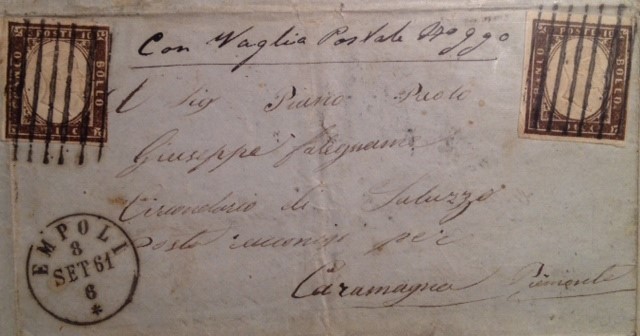 Con Vaglia Postale
FRANCO POSTE BOLLO C. 10
FRANCO POSTE BOLLO C. 10
Sig Paolo
Giuseppe Falegname
Circondario di Saluzzo
Posta per
Caramagna Piemonte
EMPOLI
8
SET 61
6
*